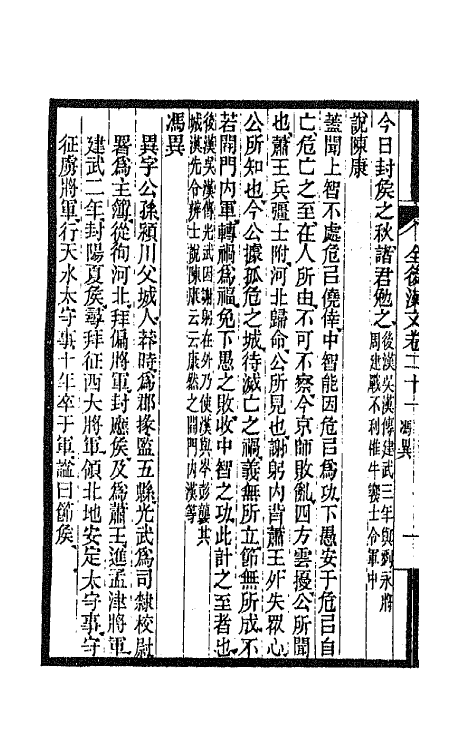 今日封矦之秋諸君勉之後漢吳漢傳建武三年與劉永將
周建戰不利椎牛饗士令軍中
說陳康
蓋聞上智不處危㠯僥倖中智能因危㠯爲功下愚安于危㠯自
亡危亡之至在人所由不可不察今京師敗亂四方雲擾公所聞
也蕭王兵彊士附河北歸命公所見也謝躬內背蕭王外失眾心
公所知也今公據孤危之城待滅亡之禍義無所立節無所成不
若開門內軍轉禍爲福免下愚之敗收中智之功此計之至者也
後漢吳漢傳光武因謝躬在外乃使漢與岑彭襲其
城漢先令辨士說陳康云云康然之開門內漢等
馮異
異字公孫潁川父城人莽時爲郡掾監五縣光武爲司隸校尉
署爲主簿從徇河北拜偏將軍封應矦及爲蕭王進孟津將軍
建武二年封陽夏矦尋拜征西大將軍領北地安定太守事守
征虜將軍行天水太守事十年卒于軍謚曰節矦
全後漢文卷二十
馮異